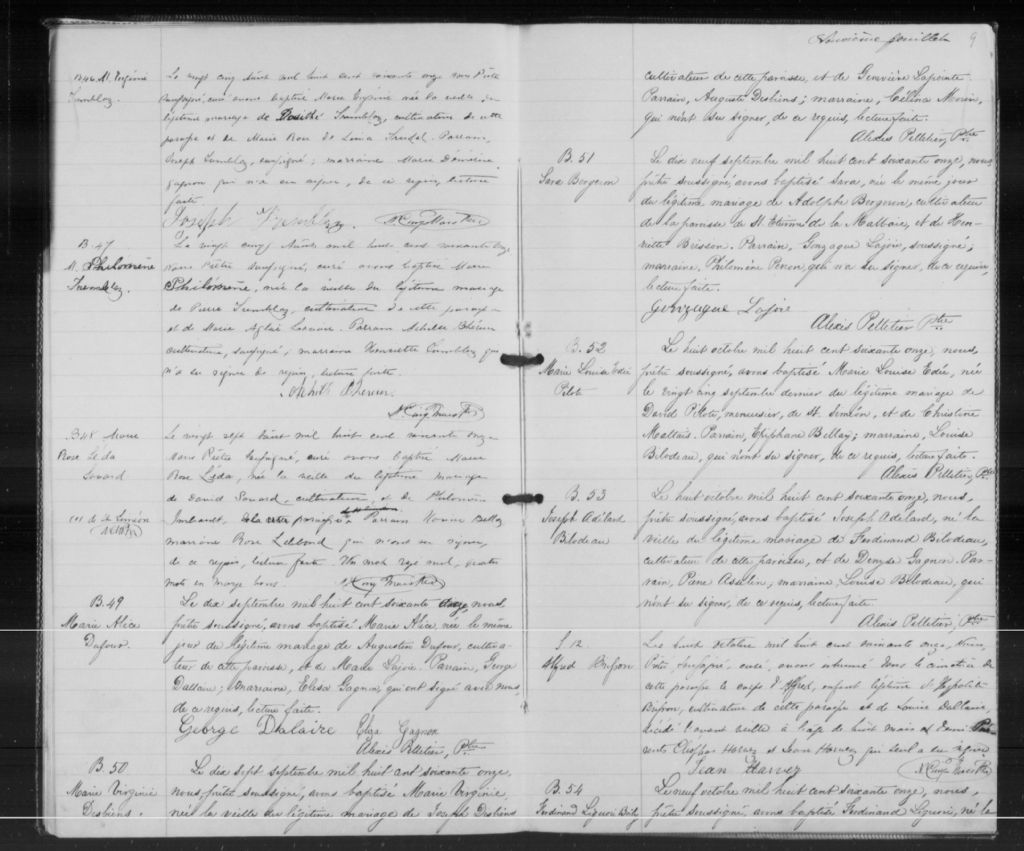 B.46 M. Virginie
Tremblay.
Le vingt cinq Août mil huit cent soixante onze nous Prêtre
soussigné, curé avons baptisé Marie Virginie née la veille du
légitime mariage de Tremblay, cultivateur de cette
paroisse et de Marie Rose de Lima Parrain,
Joseph Tremblay, soussigné; marraine Marie
Gagnon qui n'a su signer, de ce requis, lecture
faite.
Joseph Tremblay
B. 47
M. Philomène
Tremblay.
Le vingt cinq Août mil huit cent soixante onze
nous Prêtre soussigné, curé avons baptisé Marie
Philomène, née la veille du légitime mariage
de Pierre Tremblay, cultivateur de cette paroisse
et de Marie Aglaé Parrain Achille
cultivateur, soussigné; marraine Henriette Tremblay qui
n'a su signer de requis, lecture faite.
B 48 Marie
Rose Léda
Le vingt sept Août mil huit cent soixante onze
nous Prêtre soussigné, curé avons baptisé Marie
Rose Léda, née la veille du légitime mariage
de David cultivateur, et de Philomène
Imbeault, de la cette paroisse Parrain
marraine Rose qui n'ont su signer,
de ce requis, lecture faite. mot rayé nul, quatre
mots en marge bons.
B. 49
Marie Alice
Dufour.
Le dix septembre mil huit cent soixante onze, nous
prêtre soussigné, avons baptisé Marie Alice, née le même
jour du légitime mariage de Augustin Dufour, cultiva-
teur de cette paroisse, et de Marie Lajoie. Parrain, George
Dallaire; marraine, Elisa Gagnon, qui ont signé avec nous,
de ce requis, lecture faite.
George Dalaire Elza Gagnon
Alexis Pelletier, Ptre
B. 50
Marie Virginie
Desbiens.
Le dix sept septembre mil huit cent soixante onze,
nous, prêtre soussigné, avons baptisé Marie Virginie,
née la veille du légitime mariage de Joseph Desbiens
Neuvième feuillet 9
cultivateur de cette paroisse, et de Geneviève Lapointe.
Parrain, Auguste Desbiens; marraine, Célina Morin,
qui n'ont su signer, de ce requis, lecture faite.
Alexis Pelletier, Ptre
B. 51
Sara Bergeron
Le dix neuf septembre mil huit cent soixante onze, nous,
prêtre soussigné, avons baptisé Sara, née le même jour
du légitime mariage de Adolphe Bergeron, cultivateur
de la paroisse de St. Etienne de la Malbaie, et de Hen-
riette Brisson. Parrain, Gonzague Lajoie, soussigné;
marraine, Philomène Perron, qui n'a su signer, de ce requis,
lecture faite.
Gonzague Lajoie
Alexis Pelletier Ptre
B. 52
Marie Louise Edée
Pilote
Le huit octobre mil huit cent soixante onze, nous,
prêtre soussigné, avons baptisé Marie Louise Edée, née
le vingt cinq septembre dernier du légitime mariage de
David Pilote, menuisier, de St. Siméon, et de Christine
Maltais. Parrain, Epiphane Bellay; marraine, Louise
Bilodeau, qui n'ont su signer, de ce requis, lecture faite.
Alexis Pelletier, Ptre
B. 53
Joseph Adélard
Bilodeau
Le huit octobre mil huit cent soixante onze, nous,
prêtre soussigné, avons baptisé Joseph Adélard, né la
veille du légitime mariage de Ferdinand Bilodeau,
cultivateur de cette paroisse, et de Denyse Gagnon. Par-
rain, Asselin, marraine, Louise Bilodeau, qui
n'ont su signer, de ce requis, lecture faite.
Alexis Pelletier, Ptre
S 12
Alfred
Les huit octobre mil huit cent soixante onze, Nous,
Prêtre soussigné, curé, avons inhumé dans le cimetière de
cette paroisse le corps d'Alfred, enfant légitime de Hypolite
cultivateur de cette paroisse et de Louise Dallaire,
décédé l'avant veille à l'âge de huit mois et demi. Pré-
sents Harvey et Jean Harvey qui seul a su signer
Jean Harvey
B. 54
Ferdinand Liguori
Le neuf octobre mil huit cent soixante onze, nous,
prêtre soussigné, avons baptisé Ferdinand Liguori, né la